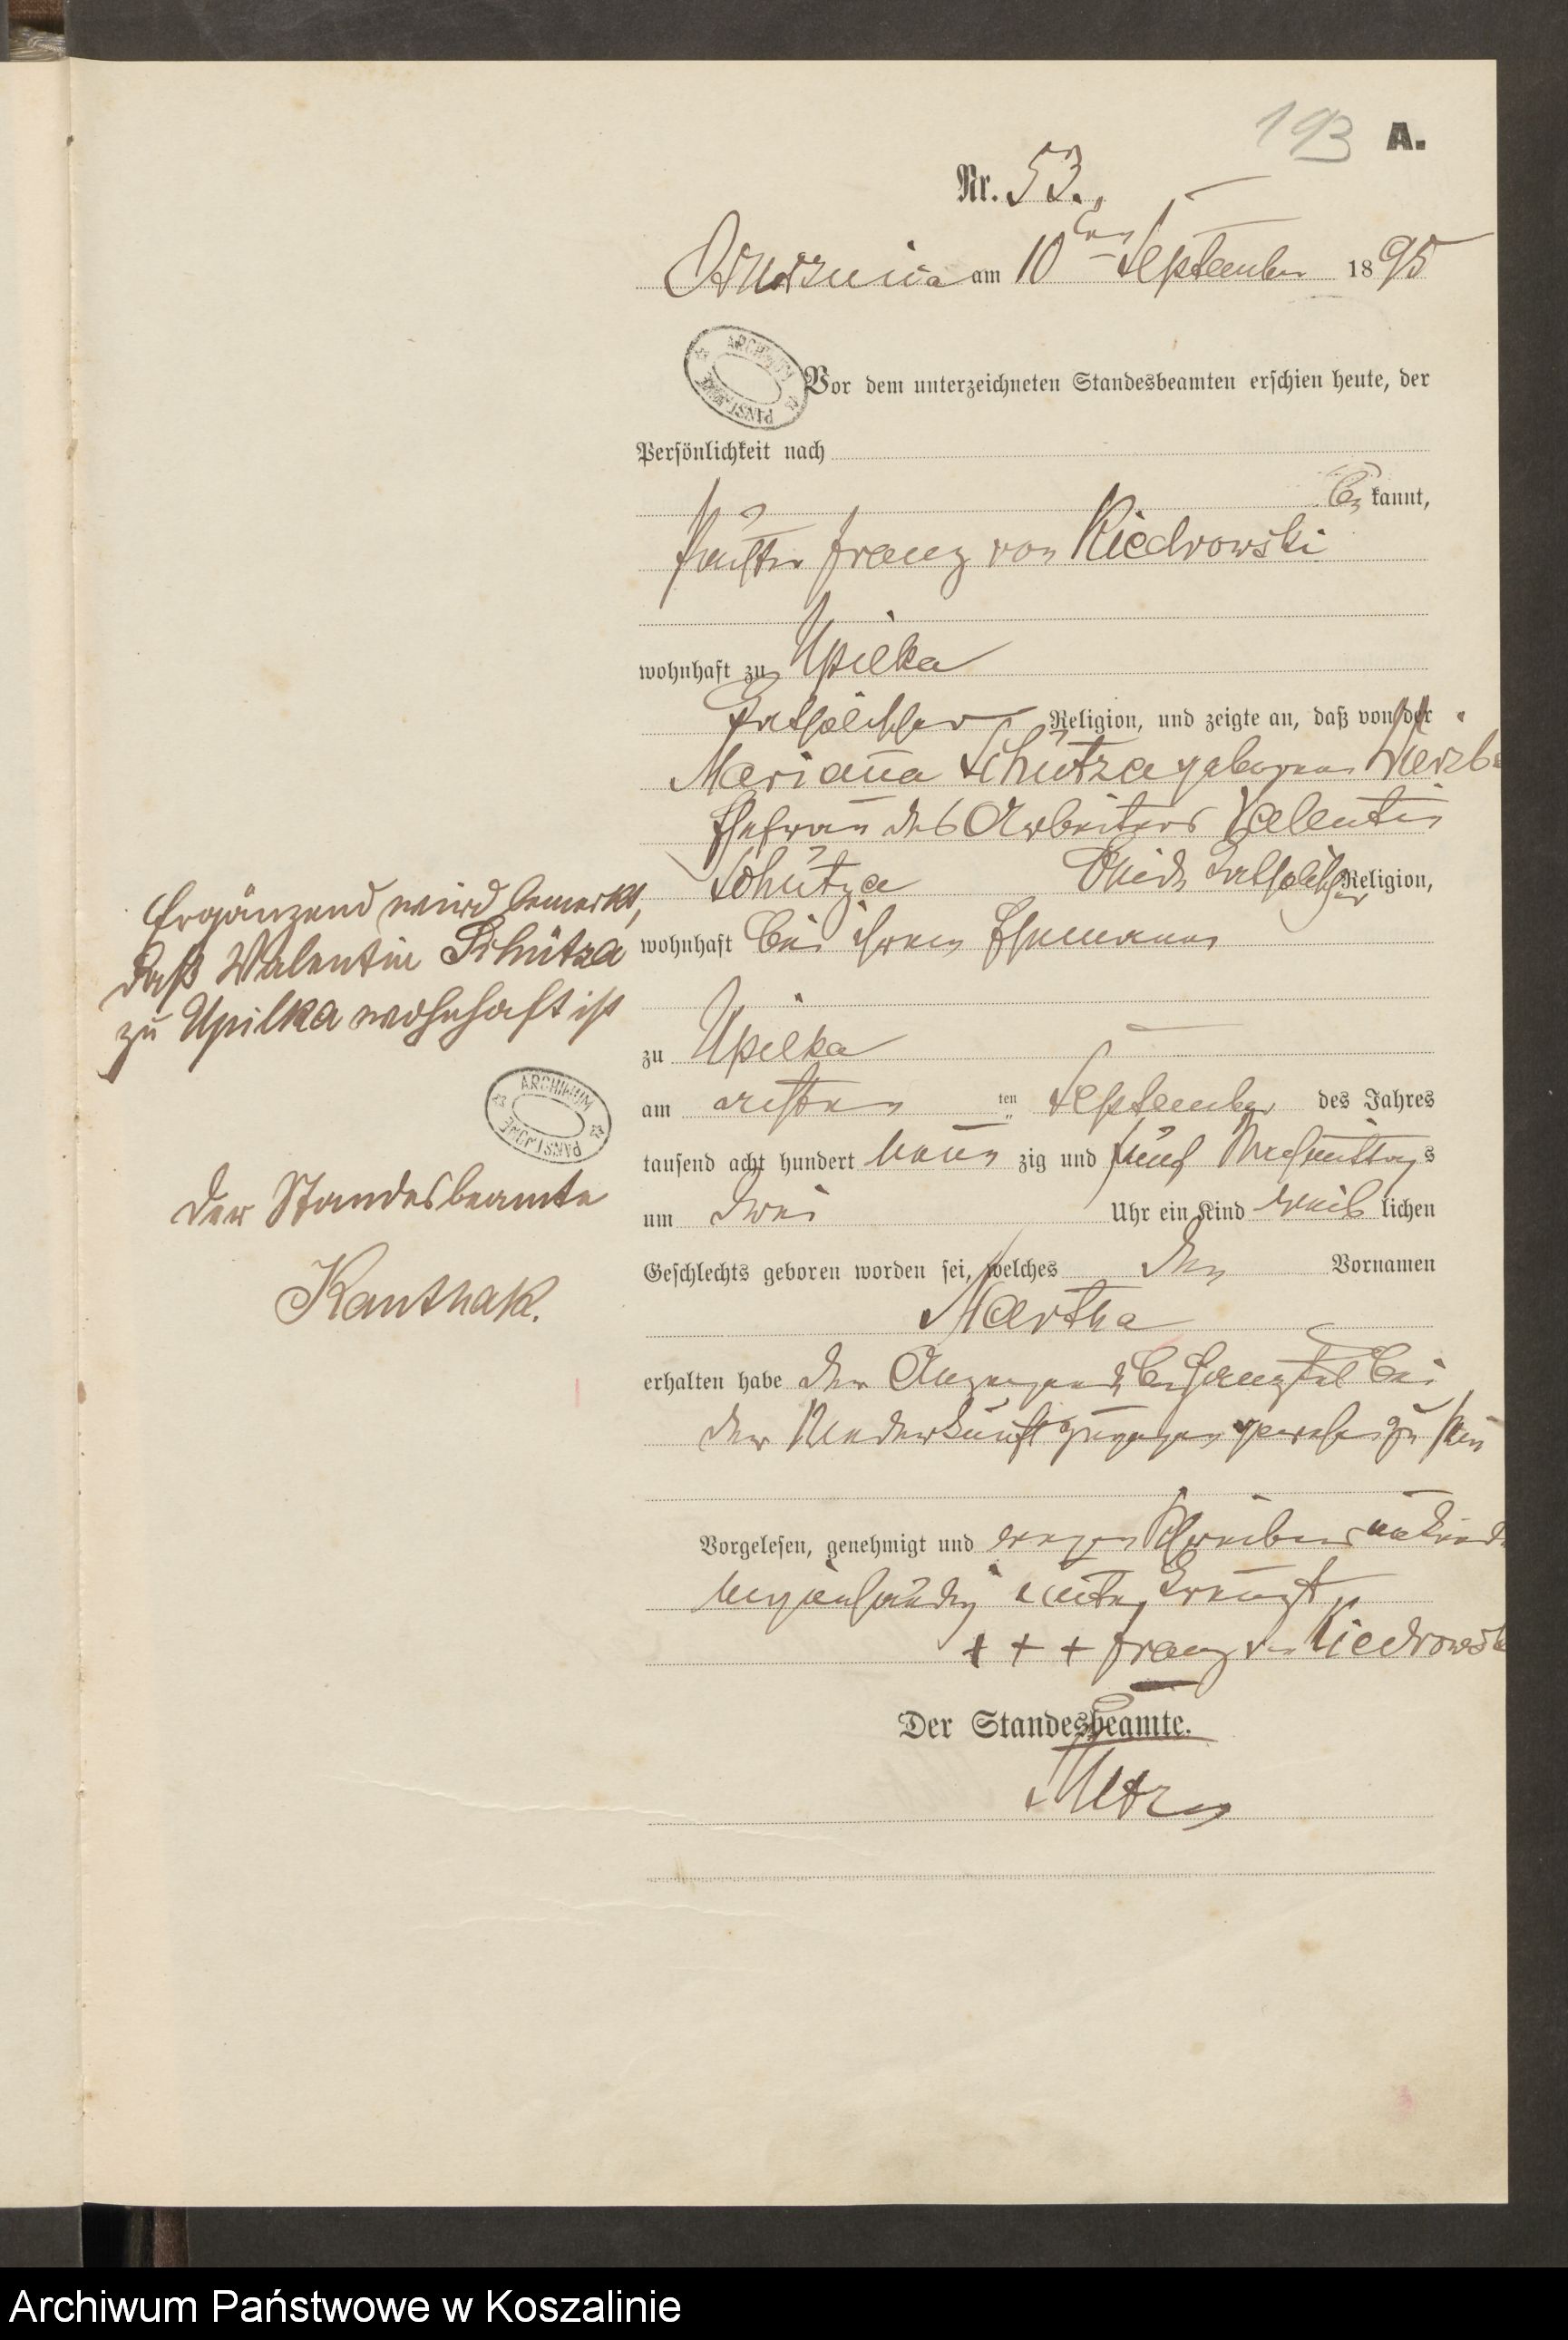 193 A.
Nr. 53.
am 10ten September 1895
ARCHIWUM PAŃSTWOWE
Vor dem unterzeichneten Standesbeamten erschien heute, der
Persönlichkeit nach
be kannt,
Franz von Kiedrowski
wohnhaft zu Upilka
katholischer Religion, und zeigte an, daß von der
Marianna Schütza geborene
Ehefrau des Arbeiters Valentin
Schütza Beide katholischer Religion,
wohnhaft bei ihrem Ehemanne
zu Upilka
am ersten ten September des Jahres
tausend acht hundert neun zig und fünf Nachmittags
um zwei Uhr ein Kind weib lichen
Geschlechts geboren worden sei, welches den Vornamen
Martha
erhalten habe der Anzeigende bei
der Niederkunft zugegen gewesen zu sein
Vorgelesen, genehmigt und wegen Schreibens
unterkreuzt
+ + + Franz von Kiedrowski
Der Standesbeamte.
Ergänzend wird bemerkt,
daß Walentin Schütza
zu Upilka wohnhaft ist
ARCHIWUM PAŃSTWOWE
Der Standesbeamte
Kanthak.
Archiwum Państwowe w Koszalinie